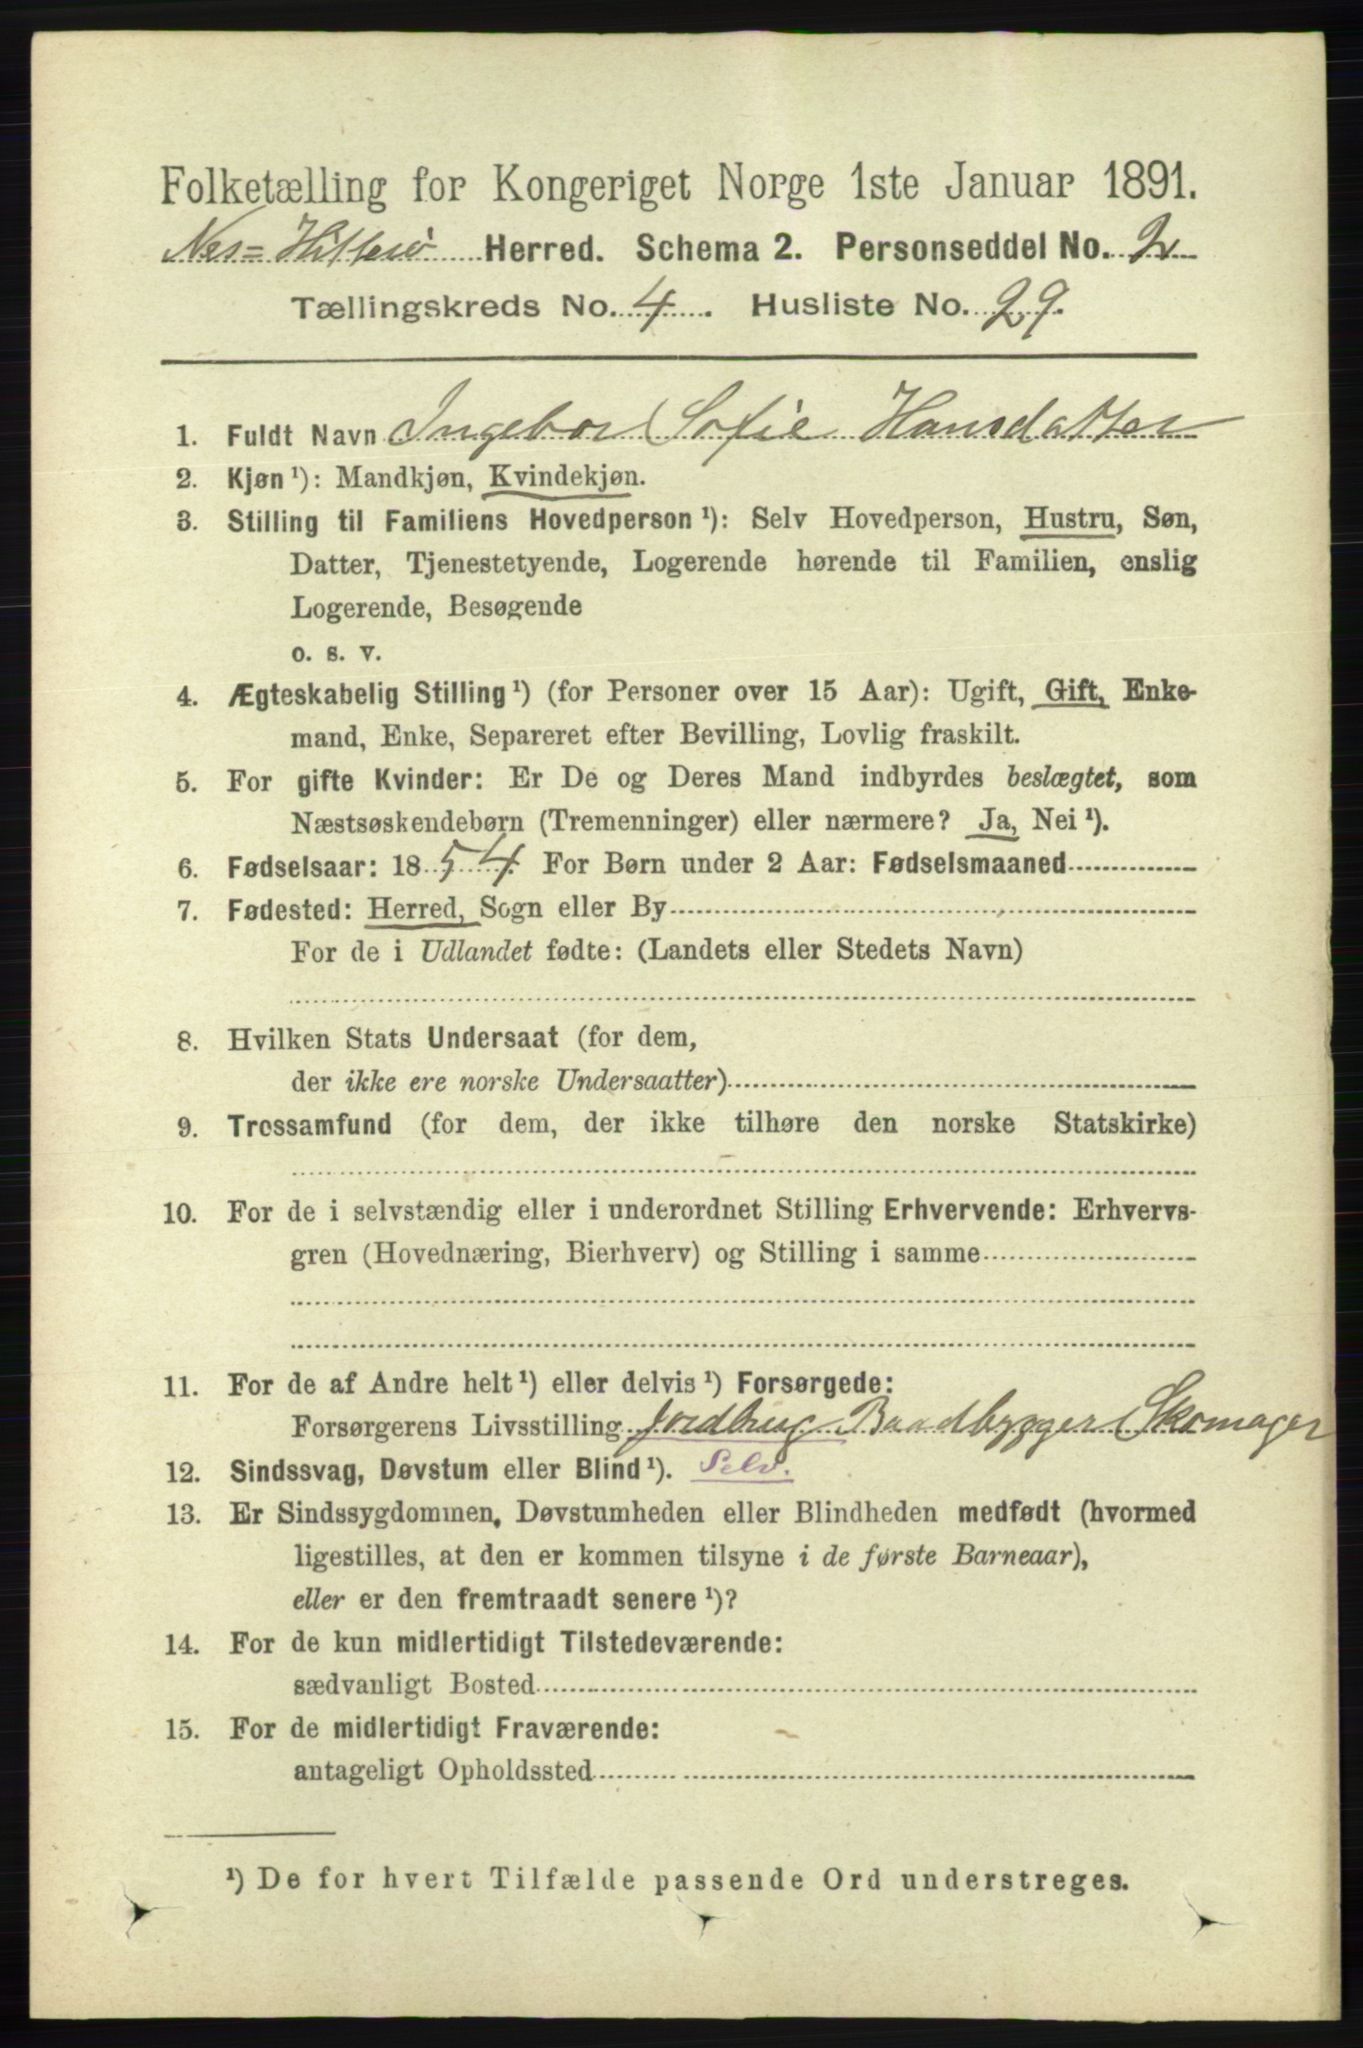 Folketælling for Kongeriget Norge 1ste Januar 1891.
Nes=Hitterø Herred. Schema 2. Personseddel No. 2
Tællingskreds No. 4. Husliste No. 29.
1. Fuldt Navn Ingebor Sofie Hansdatter
2. Kjøn ¹): Mandkjøn, Kvindekjøn.
3. Stilling til Familiens Hovedperson ¹): Selv Hovedperson, Hustru, Søn,
Datter, Tjenestetyende, Logerende hørende til Familien, enslig
Logerende, Besøgende
o. s. v.
4. Ægteskabelig Stilling ¹) (for Personer over 15 Aar): Ugift, Gift, Enke-
mand, Enke, Separeret efter Bevilling, Lovlig fraskilt.
5. For gifte Kvinder: Er De og Deres Mand indbyrdes beslægtet, som
Næstsøskendebørn (Tremenninger) eller nærmere? Ja, Nei ¹).
6. Fødselsaar: 1854 For Børn under 2 Aar: Fødselsmaaned
7. Fødested: Herred, Sogn eller By
For de i Udlandet fødte: (Landets eller Stedets Navn)
8. Hvilken Stats Undersaat (for dem,
der ikke ere norske Undersaatter)
9. Trossamfund (for dem, der ikke tilhøre den norske Statskirke)
10. For de i selvstændig eller i underordnet Stilling Erhvervende: Erhvervs-
gren (Hovednæring, Bierhverv) og Stilling i samme
11. For de af Andre helt ¹) eller delvis ¹) Forsørgede:
Forsørgerens Livsstilling Jordbrug Baadbygger Skomager
12. Sindssvag, Døvstum eller Blind ¹). Selv.
13. Er Sindssygdommen, Døvstumheden eller Blindheden medfødt (hvormed
ligestilles, at den er kommen tilsyne i de første Barneaar),
eller er den fremtraadt senere ¹)?
14. For de kun midlertidigt Tilstedeværende:
sædvanligt Bosted
15. For de midlertidigt Fraværende:
antageligt Opholdssted
¹) De for hvert Tilfælde passende Ord understreges.